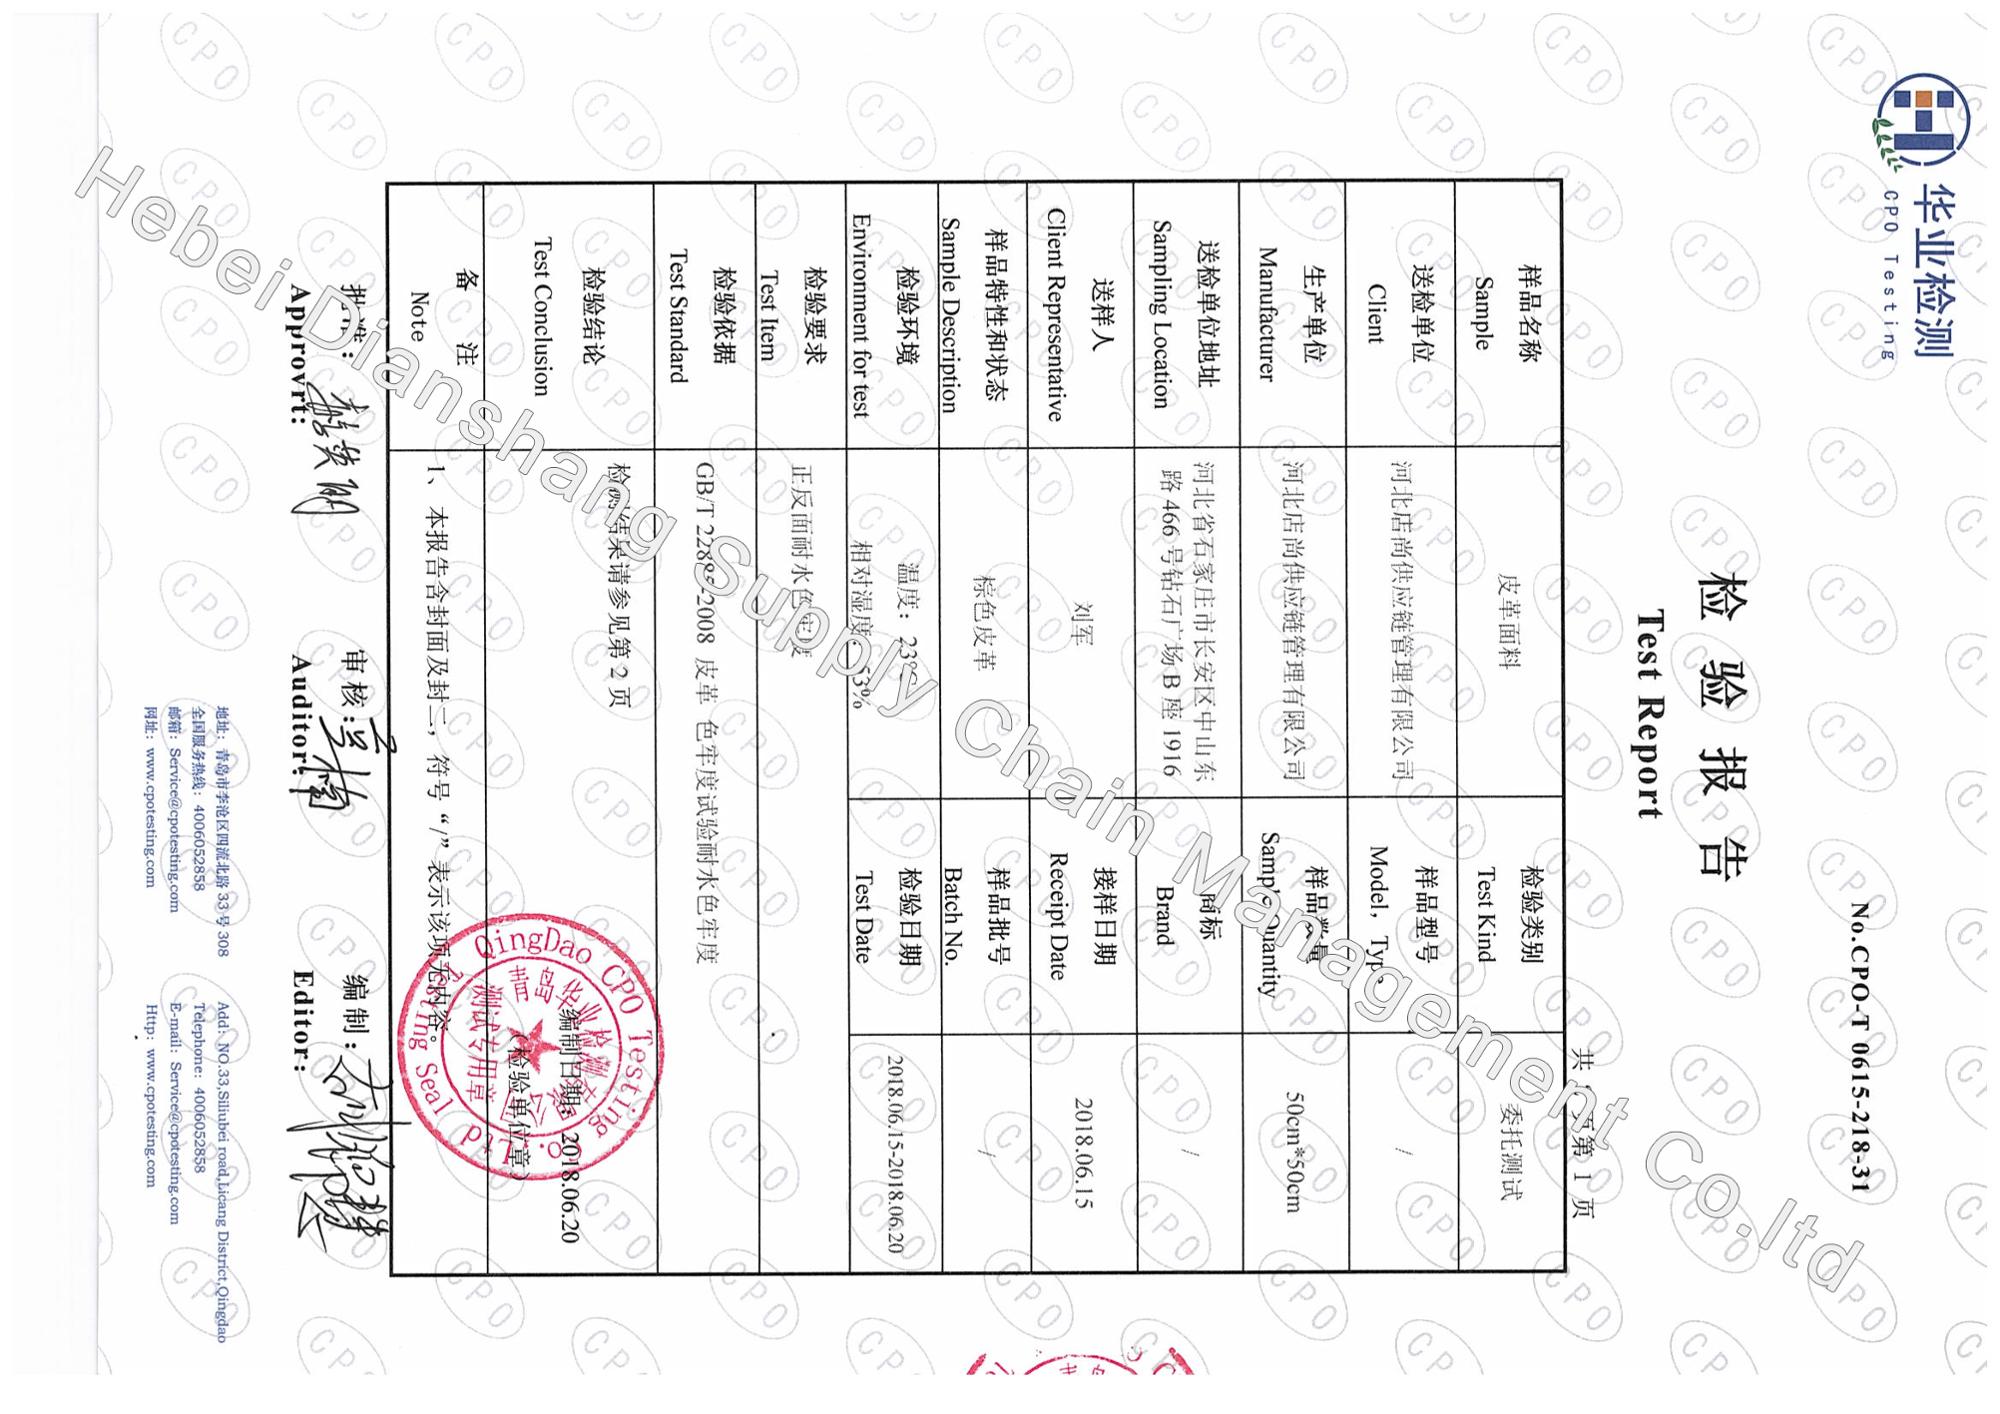 华业检测
CPO Testing
No.CPO-T 0615-218-31
检 验 报 告
Test Report
共 页第 1 页
样品名称
Sample
皮革面料
检验类别
Test Kind
委托测试
送检单位
Client
河北店尚供应链管理有限公司
样品型号
Model, Type
/
生产单位
Manufacturer
河北店尚供应链管理有限公司
样品数量
Sample Quantity
50cm*50cm
送检单位地址
Sampling Location
河北省石家庄市长安区中山东
路 466 号钻石广场 B 座 1916
商标
Brand
/
送样人
Client Representative
刘军
接样日期
Receipt Date
2018.06.15
样品特性和状态
Sample Description
棕色皮革
样品批号
Batch No.
/
检验环境
Environment for test
温度：23℃
相对湿度：53%
检验日期
Test Date
2018.06.15-2018.06.20
检验要求
Test Item
正反面耐水色牢度
检验依据
Test Standard
GB/T 22885-2008 皮革 色牢度试验耐水色牢度
检验结论
Test Conclusion
检测结果请参见第 2 页
编制日期：2018.06.20
（检验单位章）
备 注
Note
1、本报告含封面及封二，符号“/”表示该项无内容。
QingDao CPO Testing Co.Ltd
青岛华业检测有限公司
测试专用章
Testing Seal
批准：
Approvrt:
审核：
Auditor:
编制：
Editor:
地址：青岛市李沧区四流北路 33 号 308
全国服务热线：4006052858
邮箱：Service@cpotesting.com
网址：www.cpotesting.com
Add: NO.33,Siliubei road,Licang District,Qingdao
Telephone: 4006052858
E-mail: Service@cpotesting.com
Http: www.cpotesting.com
Hebei Dianshang Supply Chain Management Co.ltd